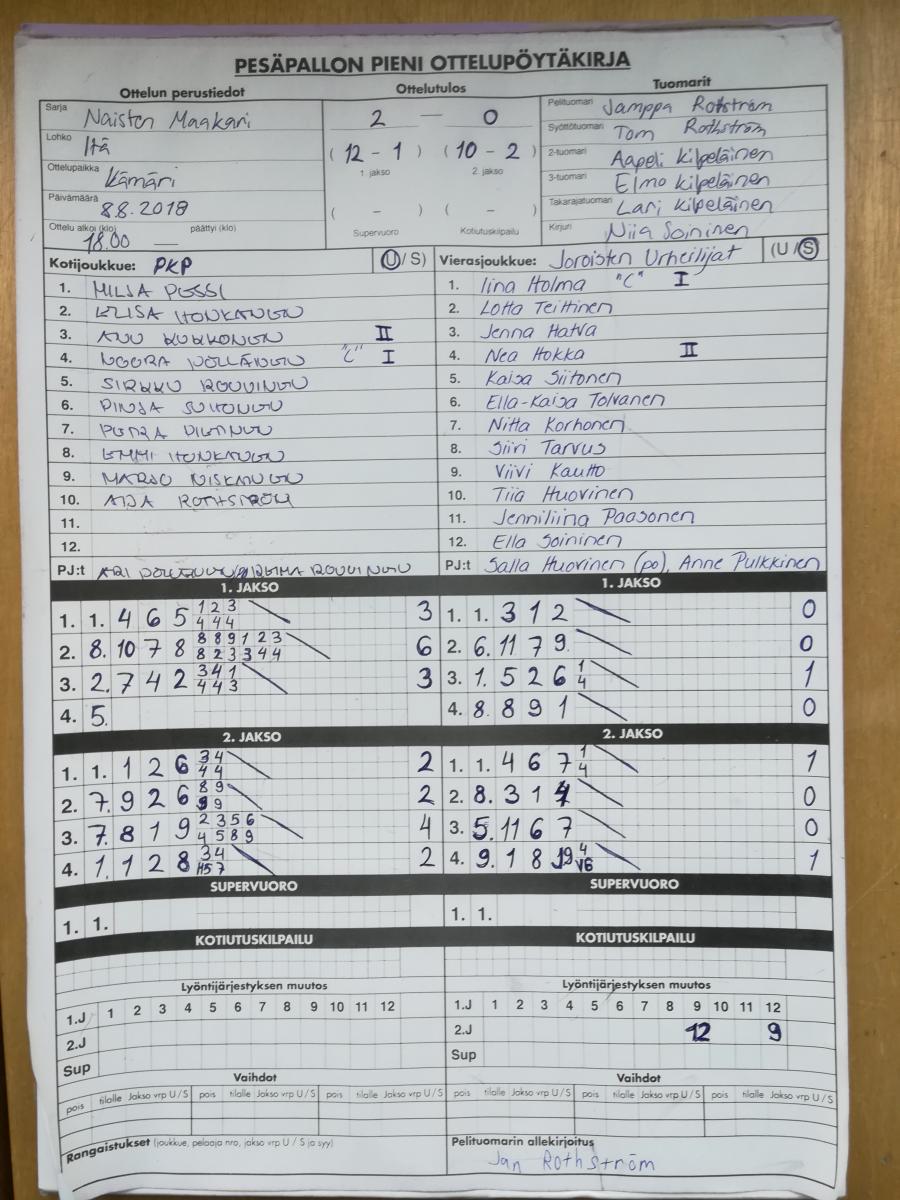 PESÄPALLON PIENI OTTELUPÖYTÄKIRJA
Ottelun perustiedot
Sarja Naisten Maakari
Lohko Itä
Ottelupaikka Kämäri
Päivämäärä 8.8.2018
Ottelu alkoi (klo) 18.00 päättyi (klo) —
Ottelutulos
2 — 0
( 12 - 1 ) ( 10 - 2 )
1. jakso 2. jakso
( - ) ( - )
Supervuoro Kotiutuskilpailu
Tuomarit
Pelituomari Jamppa Rothström
Syöttötuomari Tom Rothström
2-tuomari Aapeli Kilpeläinen
3-tuomari Elmo Kilpeläinen
Takarajatuomari Lari Kilpeläinen
Kirjuri Niia Soininen
Kotijoukkue: PKP (U/S)
1. MILJA PESSI
2. ELISA HONKANEN
3. ANU KUKKONEN II
4. NOORA PÖLLÄNEN "C" I
5. SIRKKU ROUVINEN
6. PINJA SUHONEN
7. PETRA
8. EMMI HONKANEN
9. MARJO NISKANEN
10. AIJA ROTHSTRÖM
11.
12.
PJ:t ARI ROUVINEN
Vierasjoukkue: Joroisten Urheilijat (U/S)
1. Iina Holma "C" I
2. Lotta Teittinen
3. Jenna Hatva
4. Nea Hokka II
5. Kaisa Siitonen
6. Ella-Kaisa Tolvanen
7. Nitta Korhonen
8. Siiri Tarvus
9. Viivi Kautto
10. Tiia Huovinen
11. Jenniliina Paasonen
12. Ella Soininen
PJ:t Salla Huovinen (po), Anne Pulkkinen
1. JAKSO
1. 1. 4 6 5 1 2 3 3
4 4 4
2. 8. 10 7 8 8 8 9 1 2 3 6
8 2 3 3 4 4
3. 2. 7 4 2 3 4 1 3
4 4 3
4. 5.
1. JAKSO
1. 1. 3 1 2 0
2. 6. 11 7 9 0
3. 1. 5 2 6 1 1
4
4. 8. 8 9 1 0
2. JAKSO
1. 1. 1 2 6 3 4 2
4 4
2. 7. 9 2 6 8 9 2
9 9
3. 7. 8 1 9 2 3 5 6 4
4 5 8 9
4. 1. 1 2 8 3 4 2
H5 7
2. JAKSO
1. 1. 4 6 7 1 1
4
2. 8. 3 1 4 0
3. 5. 11 6 7 0
4. 9. 1 8 9 4 1
V6
SUPERVUORO
1. 1.
SUPERVUORO
1. 1.
KOTIUTUSKILPAILU
KOTIUTUSKILPAILU
Lyöntijärjestyksen muutos
1.J 1 2 3 4 5 6 7 8 9 10 11 12
2.J
Sup
Lyöntijärjestyksen muutos
1.J 1 2 3 4 5 6 7 8 9 10 11 12
2.J 12 9
Sup
Vaihdot
pois tilalle Jakso vrp U/S pois tilalle Jakso vrp U/S pois tilalle Jakso vrp U/S
Vaihdot
pois tilalle Jakso vrp U/S pois tilalle Jakso vrp U/S pois tilalle Jakso vrp U/S
Rangaistukset (joukkue, pelaaja nro, jakso vrp U / S ja syy)
Pelituomarin allekirjoitus
Jan Rothström